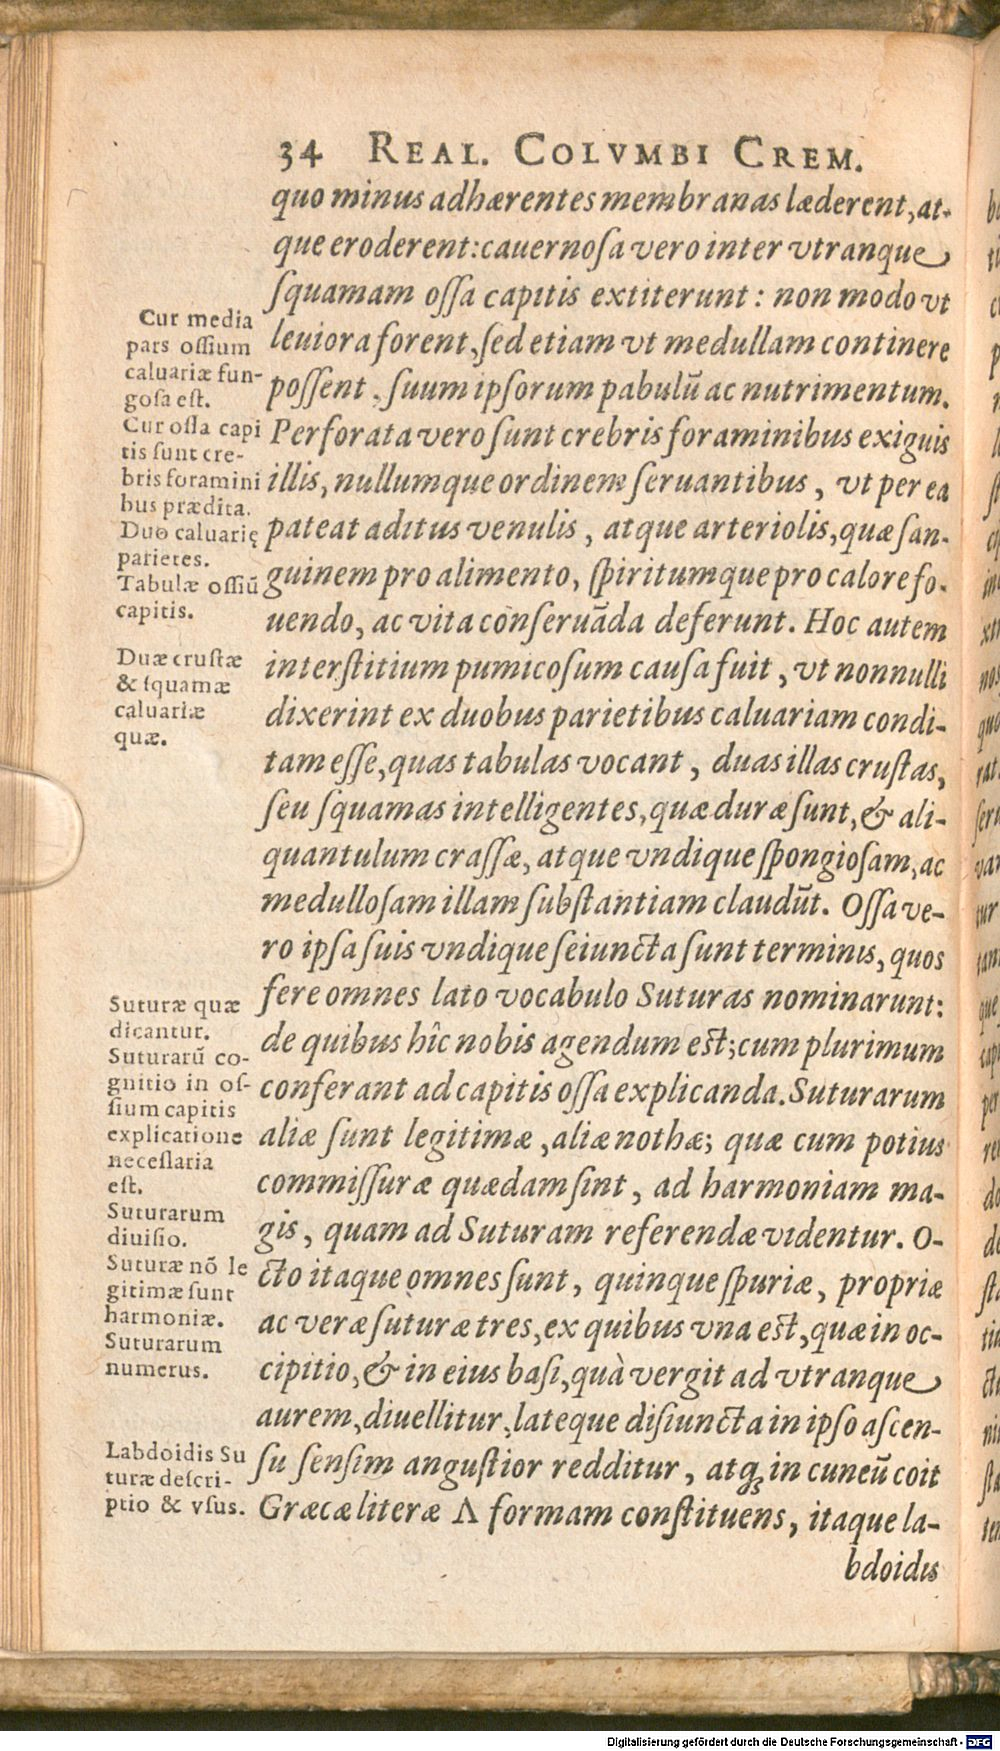 34 REAL. COLVMBI CREM.
quo minus adhærentes membranas læderent, at-
que eroderent: cauernoſa vero inter vtranque
ſquamam oſſa capitis extiterunt: non modo vt
leuiora forent, ſed etiam vt medullam continere
poſſent, ſuum ipſorum pabulũ ac nutrimentum.
Perforata vero ſunt crebris foraminibus exiguis
illis, nullumque ordinem ſeruantibus, vt per ea
pateat aditus venulis, atque arteriolis, quæ ſan-
guinem pro alimento, ſpiritumque pro calore fo-
uendo, ac vita conſeruãda deferunt. Hoc autem
interſtitium pumicoſum cauſa fuit, vt nonnulli
dixerint ex duobus parietibus caluariam condi-
tam eſſe, quas tabulas vocant, duas illas cruſtas,
ſeu ſquamas intelligentes, quæ duræ ſunt, & ali-
quantulum craſſæ, atque vndique ſpongioſam, ac
medulloſam illam ſubſtantiam claudũt. Oſſa ve-
ro ipſa ſuis vndique ſeiuncta ſunt terminis, quos
fere omnes lato vocabulo Suturas nominarunt:
de quibus hîc nobis agendum eſt; cum plurimum
conferant ad capitis oſſa explicanda. Suturarum
aliæ ſunt legitimæ, aliæ nothæ; quæ cum potius
commiſſuræ quædam ſint, ad harmoniam ma-
gis, quam ad Suturam referendæ videntur. O-
cto itaque omnes ſunt, quinque ſpuriæ, propriæ
ac veræ ſuturæ tres, ex quibus vna eſt, quæ in oc-
cipitio, & in eius baſi, quà vergit ad vtranque
aurem, diuellitur, lateque diſiuncta in ipſo aſcen-
ſu ſenſim anguſtior redditur, atq; in cuneũ coit
Græcæ literæ Λ formam conſtituens, itaque la-
bdoidis
Cur media
pars oſſium
caluariæ fun-
goſa eſt.
Cur oſſa capi
tis ſunt cre-
bris foramini
bus prædita.
Duo caluarię
parietes.
Tabulæ oſſiũ
capitis.
Duæ cruſtæ
& ſquamæ
caluariæ
quæ.
Suturæ quæ
dicantur.
Suturarũ co-
gnitio in oſ-
ſium capitis
explicatione
neceſſaria
eſt.
Suturarum
diuiſio.
Suturæ nõ le
gitimæ ſunt
harmoniæ.
Suturarum
numerus.
Labdoidis Su
turæ deſcri-
ptio & vſus.
Digitalisierung gefördert durch die Deutsche Forschungsgemeinschaft - DFG